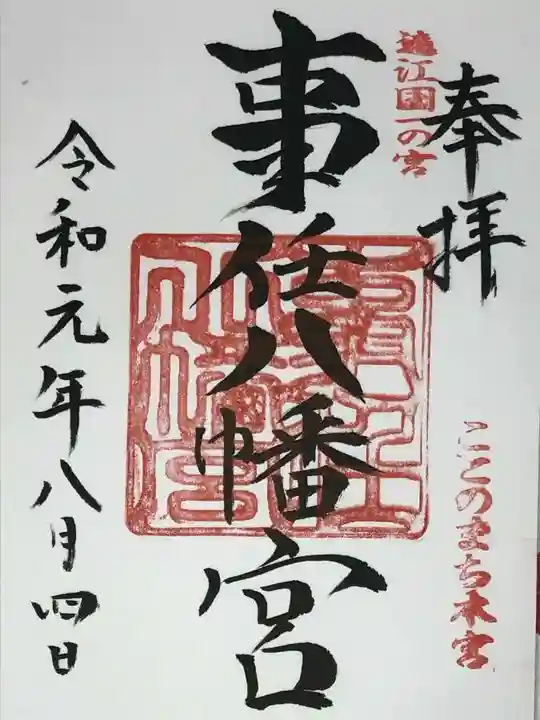 奉拝
遠江国一の宮
ことのまち本宮
事任八幡宮
令和元年八月四日